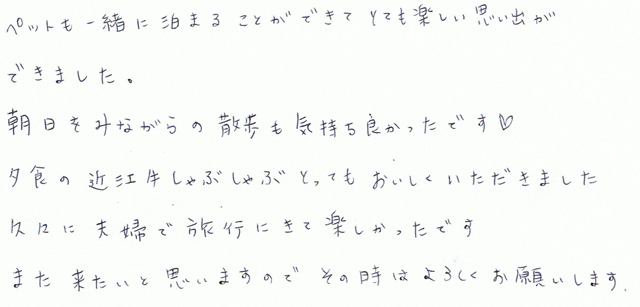 ペットも一緒に泊まることができてとても楽しい思い出が
できました。
朝日をみながらの散歩も気持ち良かったです♡
夕食の近江牛しゃぶしゃぶとってもおいしくいただきました
久々に夫婦で旅行にきて楽しかったです
また来たいと思いますのでその時はよろしくお願いします.